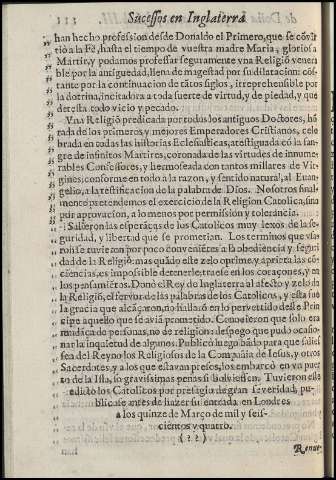 Sucessos en Inglaterra
han hecho profession desde Donaldo el Primero, que se cōvir
tiò a la Fè, hasta el tiempo de vuestra madre Maria, gloriosa
Martir, y podamos professar seguramente vna Religiō venera
ble por la antiguedad, llena de magestad por su dilatacion: cōs-
tante por la continuacion de tātos siglos, irreprehensible por
la dotrina, incitadora a toda suerte de virtud, y de piedad, y que
detesta todo vicio y pecado.
Vna Religiō predicada por todos los antiguos Doctores, hō
rada de los primeros y mejores Emperadores Cristianos, cele
brada en todas las historias Eclesiasticas, atestiguada cō la san-
gre de infinitos Martires, coronada de las virtudes de innume-
rables Confessores, y hermoseada con tantos millares de Vir-
gines, conforme en todo a la razon, y sentido natural, al Euan-
gelio, a la testificacion de la palabra de Dios. Nosotros final-
mente pretendemos el exercicio de la Religion Catolica, sino
por aprouacion, a lo menos por permission y tolerācia.
Salieron las esperāças de los Catolicos muy lexos de la se-
guridad, y libertad que se prometian. Los terminos que vsa-
ron
dad de la Religiō: mas quādo este zelo oprime, y aprieta las cō
ciencias, es impossible detenerle, trae se en los coraçones, y en
los pensamiētos. Donò el Rey de Inglaterra al afecto y zelo de
la Religiō, el feruor de las palabras de los Catolicos, y esta fue
la gracia que alcāçaron, no hallādo en lo por venir deste Prin
cipe aquello que se auiā prometido. Conocieron que solo era
mudāça de personas, no de religion: despego que pudo ocasio-
nar la inquietud de algunos. Publicò luego bādo para que salies
sen del Reyno los Religiosos de la Compañia de Iesus, y otros
Sacerdotes, y a los que estauan presos, los embarcò en vn puer
to de la Isla, sō grauissimas penas si boluiessen. Tuvieron este
edicto los Catolicos por presagio de gran seueridad, pu-
blicose antes de hazer su entrada en Londres
a los quinze de Março de mil y seis-
cientos y quatro.
(??)
Renue-